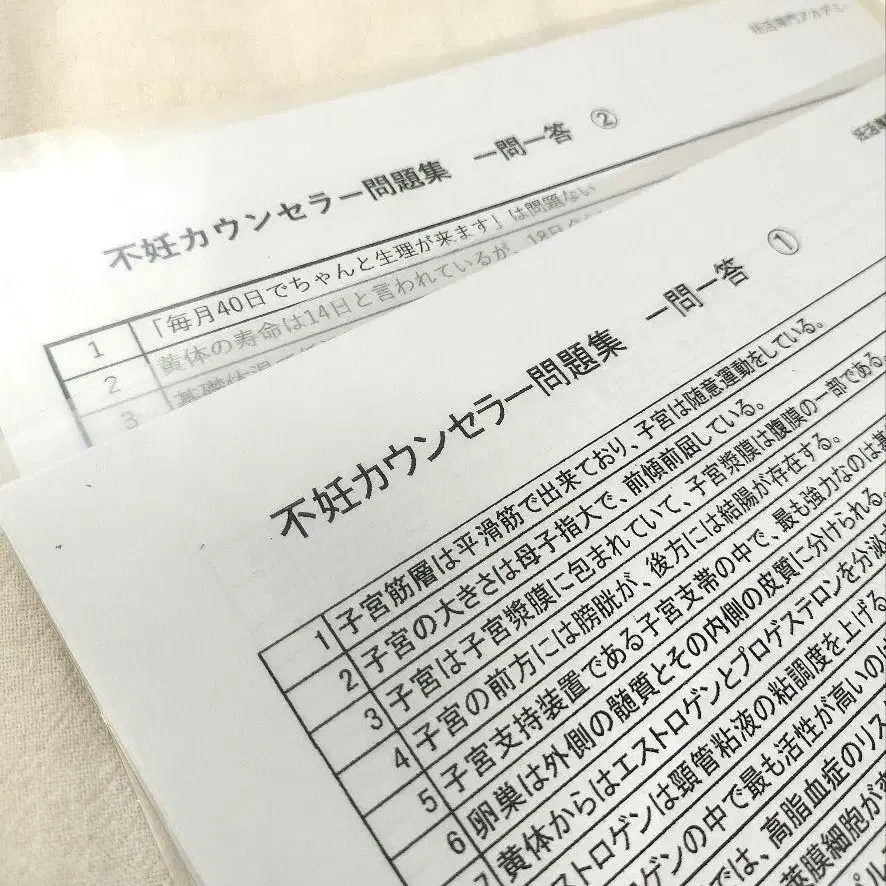 妊活専門アカデミ
不妊カウンセラー問題集 一問一答 ②
1 「毎月40日でちゃんと生理が来ます」は問題ない
2 黄体の寿命は14日と言われているが、18日
3 基礎体温
不妊カウンセラー問題集 一問一答 ①
1 子宮筋層は平滑筋で出来ており、子宮は随意運動をしている。
2 子宮の大きさは母子指大で、前傾前屈している。
3 子宮は子宮漿膜に包まれていて、子宮漿膜は腹膜の一部である。
4 子宮の前方には膀胱が、後方には結腸が存在する。
5 子宮支持装置である子宮支帯の中で、最も強力なのは基
6 卵巣は外側の髄質とその内側の皮質に分けられる
7 黄体からはエストロゲンとプロゲステロンを分泌
ストロゲンは頸管粘液の粘調度を上げる
ロゲンの中で最も活性が高いのは
では、高脂血症のリス
莢膜細胞が